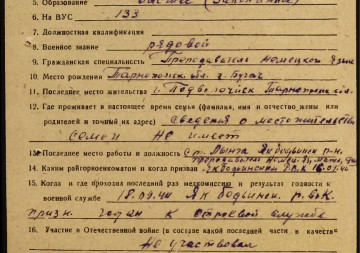 5. Образование высшее (законченное)
6. На ВУС 133
7. Должностная квалификация
8. Военное звание рядовой
9. Гражданская специальность Преподаватель немецкого языка
10. Место рождения Тарнопольск. обл. г. Бучач
11. Последнее место жительства г. Подволочийск Тарнопольск. обл.
12. Где проживает в настоящее время семья (фамилия, имя и отчество жены или
родителей и точный их адрес) сведения о местожительстве
семьи не имеет
13. Последнее место работы и должность
14. Каким райгорвоенкоматом и когда призван РВК 18.09.44
15. Когда и где проходил последний раз медкомиссию и результат годности к
военной службе 18.09.44 РВК
призн. годен к строевой службе
16. Участие в Отечественной войне (в составе какой последней части и в качестве
Не участвовал